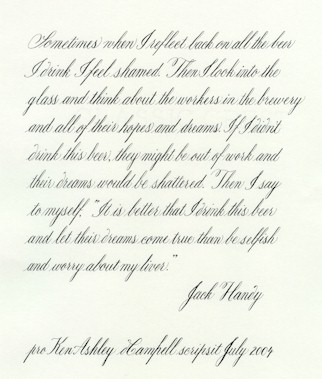 Sometimes when I reflect back on all the beer
I drink I feel shamed. Then I look into the
glass and think about the workers in the brewery
and all of their hopes and dreams. If I didn't
drink this beer, they might be out of work and
their dreams would be shattered. Then I say
to myself, "It is better that I drink this beer
and let their dreams come true than be selfish
and worry about my liver."
Jack Handy
pro Ken Ashley dCampbell scripsit July 2004